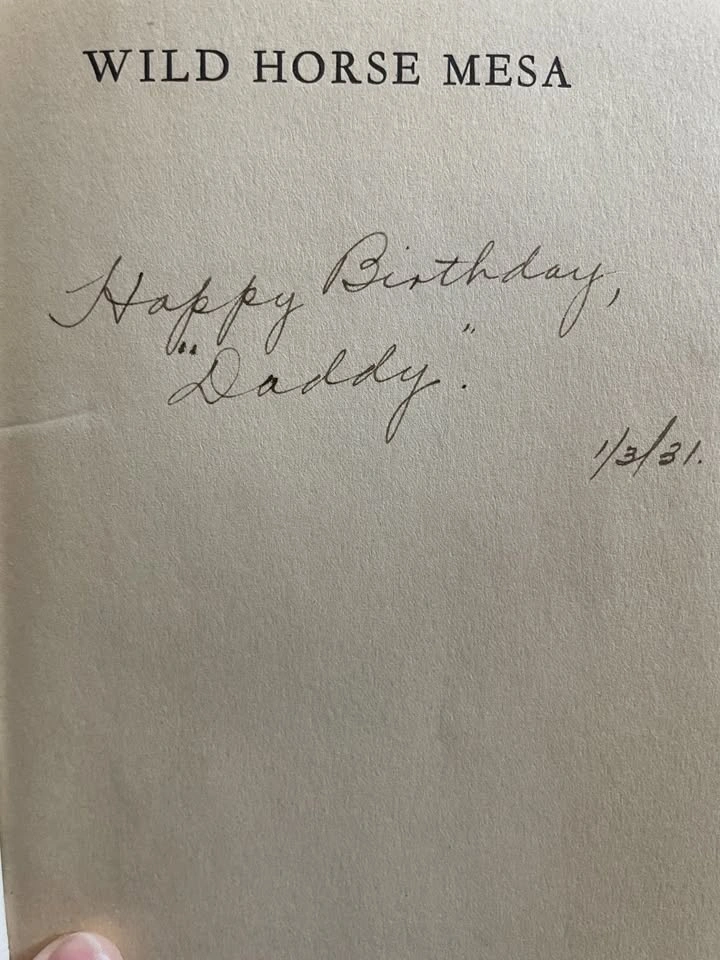 WILD HORSE MESA
Happy Birthday,
"Daddy".
1/3/31.